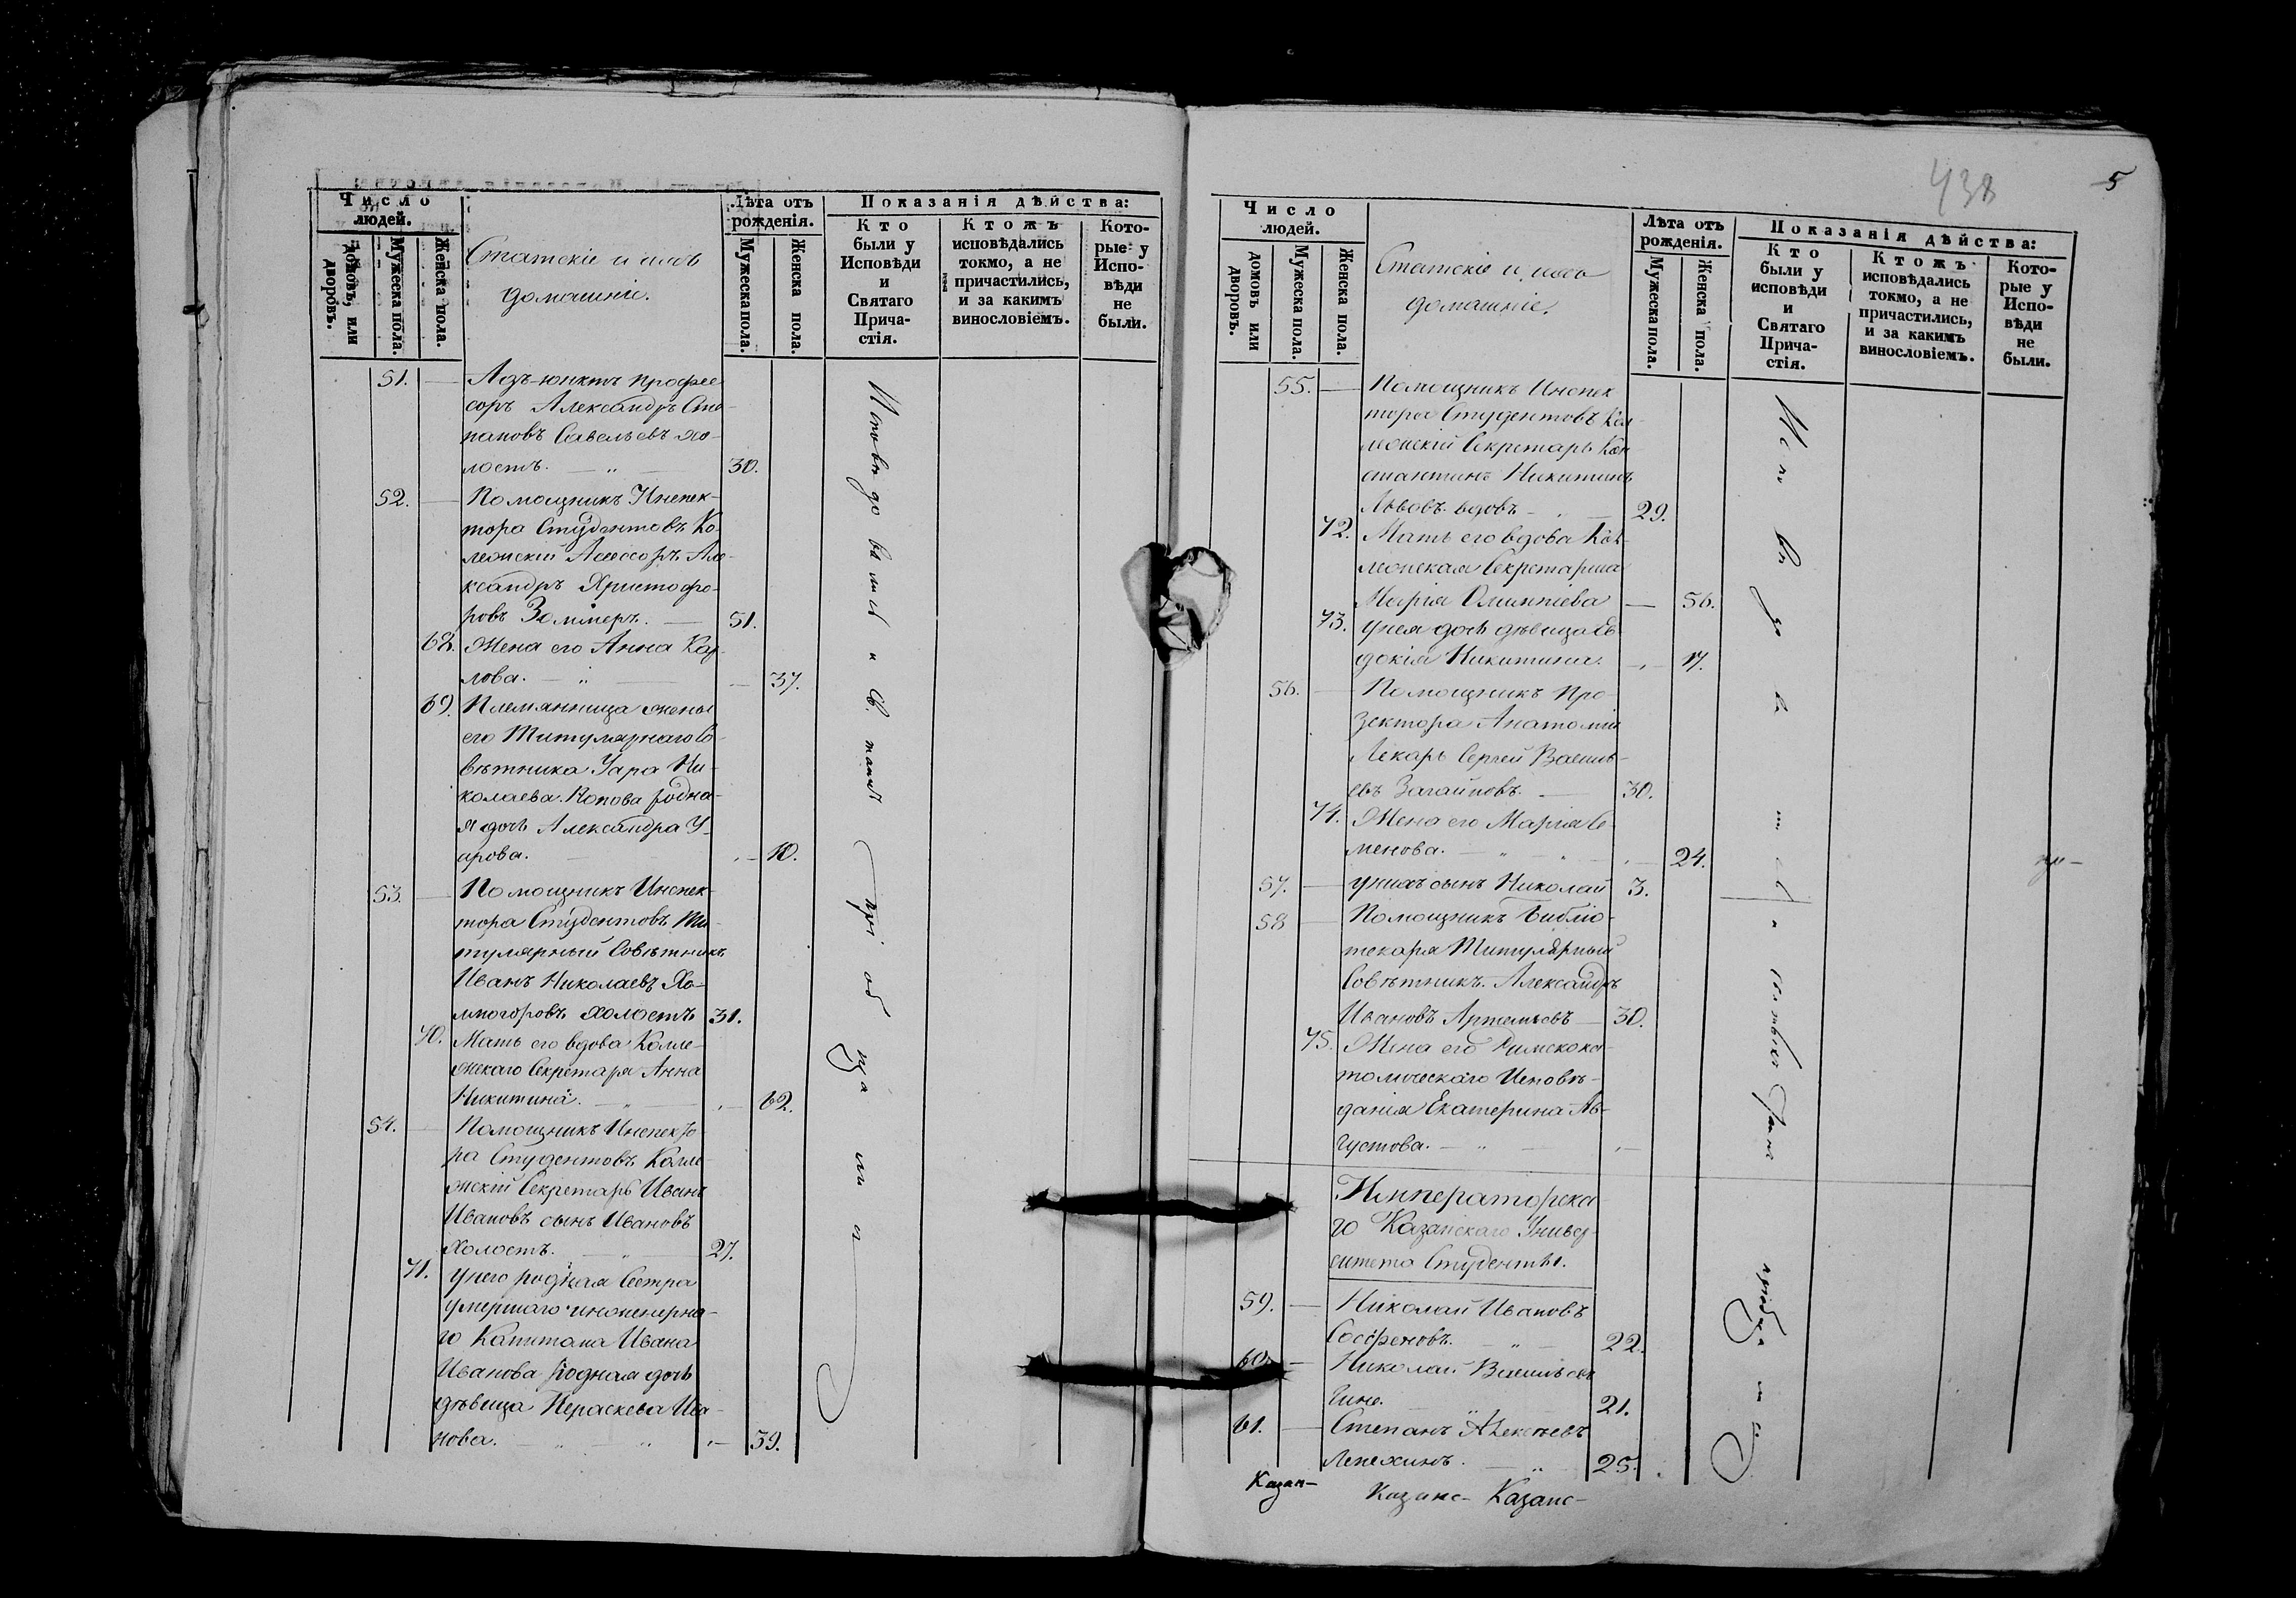 Число людей.
домовъ, или дворовъ.
Мужеска пола.
Женска пола.
Статскіе и ихъ
домашніе.
Лѣта отъ рожденія.
Мужеска пола.
Женска пола.
Показанія дѣйства:
Кто были у Исповѣди и Святаго Причастія.
Ктожъ исповѣдались токмо, а не причастились, и за какимъ винословіемъ.
Которые у Исповѣди не были.
51. — Адъ-юнктъ профес
соръ Александръ Сте-
пановъ Савельевъ хо-
лостъ. — 30.
52. — Помощникъ Инспек-
тора Студентовъ Ко-
лежскій Асессоръ Але-
ксандръ Христофо-
ровъ Зоммеръ. — 51.
68. Жена его Анна Кар-
лова. — 37.
69. Племянница жены
его Титулярнаго Со-
вѣтника Уара Ни-
колаева Попова родна-
я дочь Александра У-
арова. — 10.
53. — Помощникъ Инспек-
тора Студентовъ Ти-
тулярный Совѣтникъ
Иванъ Николаевъ Хо-
лмогоровъ холостъ 31.
70. Мать его вдова Колле-
жскаго Секретаря Анна
Никитина. — 62.
54. — Помощникъ Инспекто
ра Студентовъ Колле
жскій Секретарь Иванъ
Ивановъ сынъ Ивановъ
Холостъ. — 27.
71. у него родная Сестра
умершаго инженерна-
го Капитана Ивана
Иванова родная дочь
дѣвица Параскева Ива-
нова. — 39.
Исповѣдовались и Св. таинъ пріобщались
438
5
Число людей.
домовъ или дворовъ.
Мужеска пола.
Женска пола.
Статскіе и ихъ
домашніе.
Лѣта отъ рожденія.
Мужеска пола.
Женска пола.
Показанія дѣйства:
Кто были у исповѣди и Святаго Причастія.
Ктожъ исповѣдались токмо, а не причастились, и за какимъ винословіемъ.
Которые у Исповѣди не были.
55. — Помощникъ Инспек
тора Студентовъ Кол-
лежскій Секретарь Кон
стантинъ Никитинъ
Львовъ вдовъ — 29.
72. Мать его вдова Кол-
лежская Секретарша
Марія Олимпіева — 56.
73. у нея дочь дѣвица Ев-
докія Никитина. — 17.
56. — Помощникъ Про-
зектора Анатоміи
Лѣкарь Сергей Василь-
евъ Загайновъ. — 30.
74. Жена его Марія Се-
менова. — 24.
57. — у нихъ сынъ Николай 3.
58 — Помощникъ Библіо-
текаря Титулярный
Совѣтникъ Александръ
Ивановъ Артемьевъ — 30.
75. Жена его Римскока-
толическаго Исповѣ-
данія Екатерина Ав-
густова. —
Императорска
го Казанскаго Универ-
ситета Студенты.
59. — Николай Ивановъ
Софреновъ. — 22.
60. — Николай Васильевъ
21.
61. — Степанъ Алексѣевъ
Лепехинъ. — 25.
Казан— Казанс— Казанс—